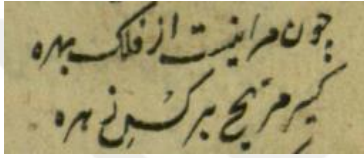 چون مرا نیست از فلک بهره
کیر مریخ بر کس زهره